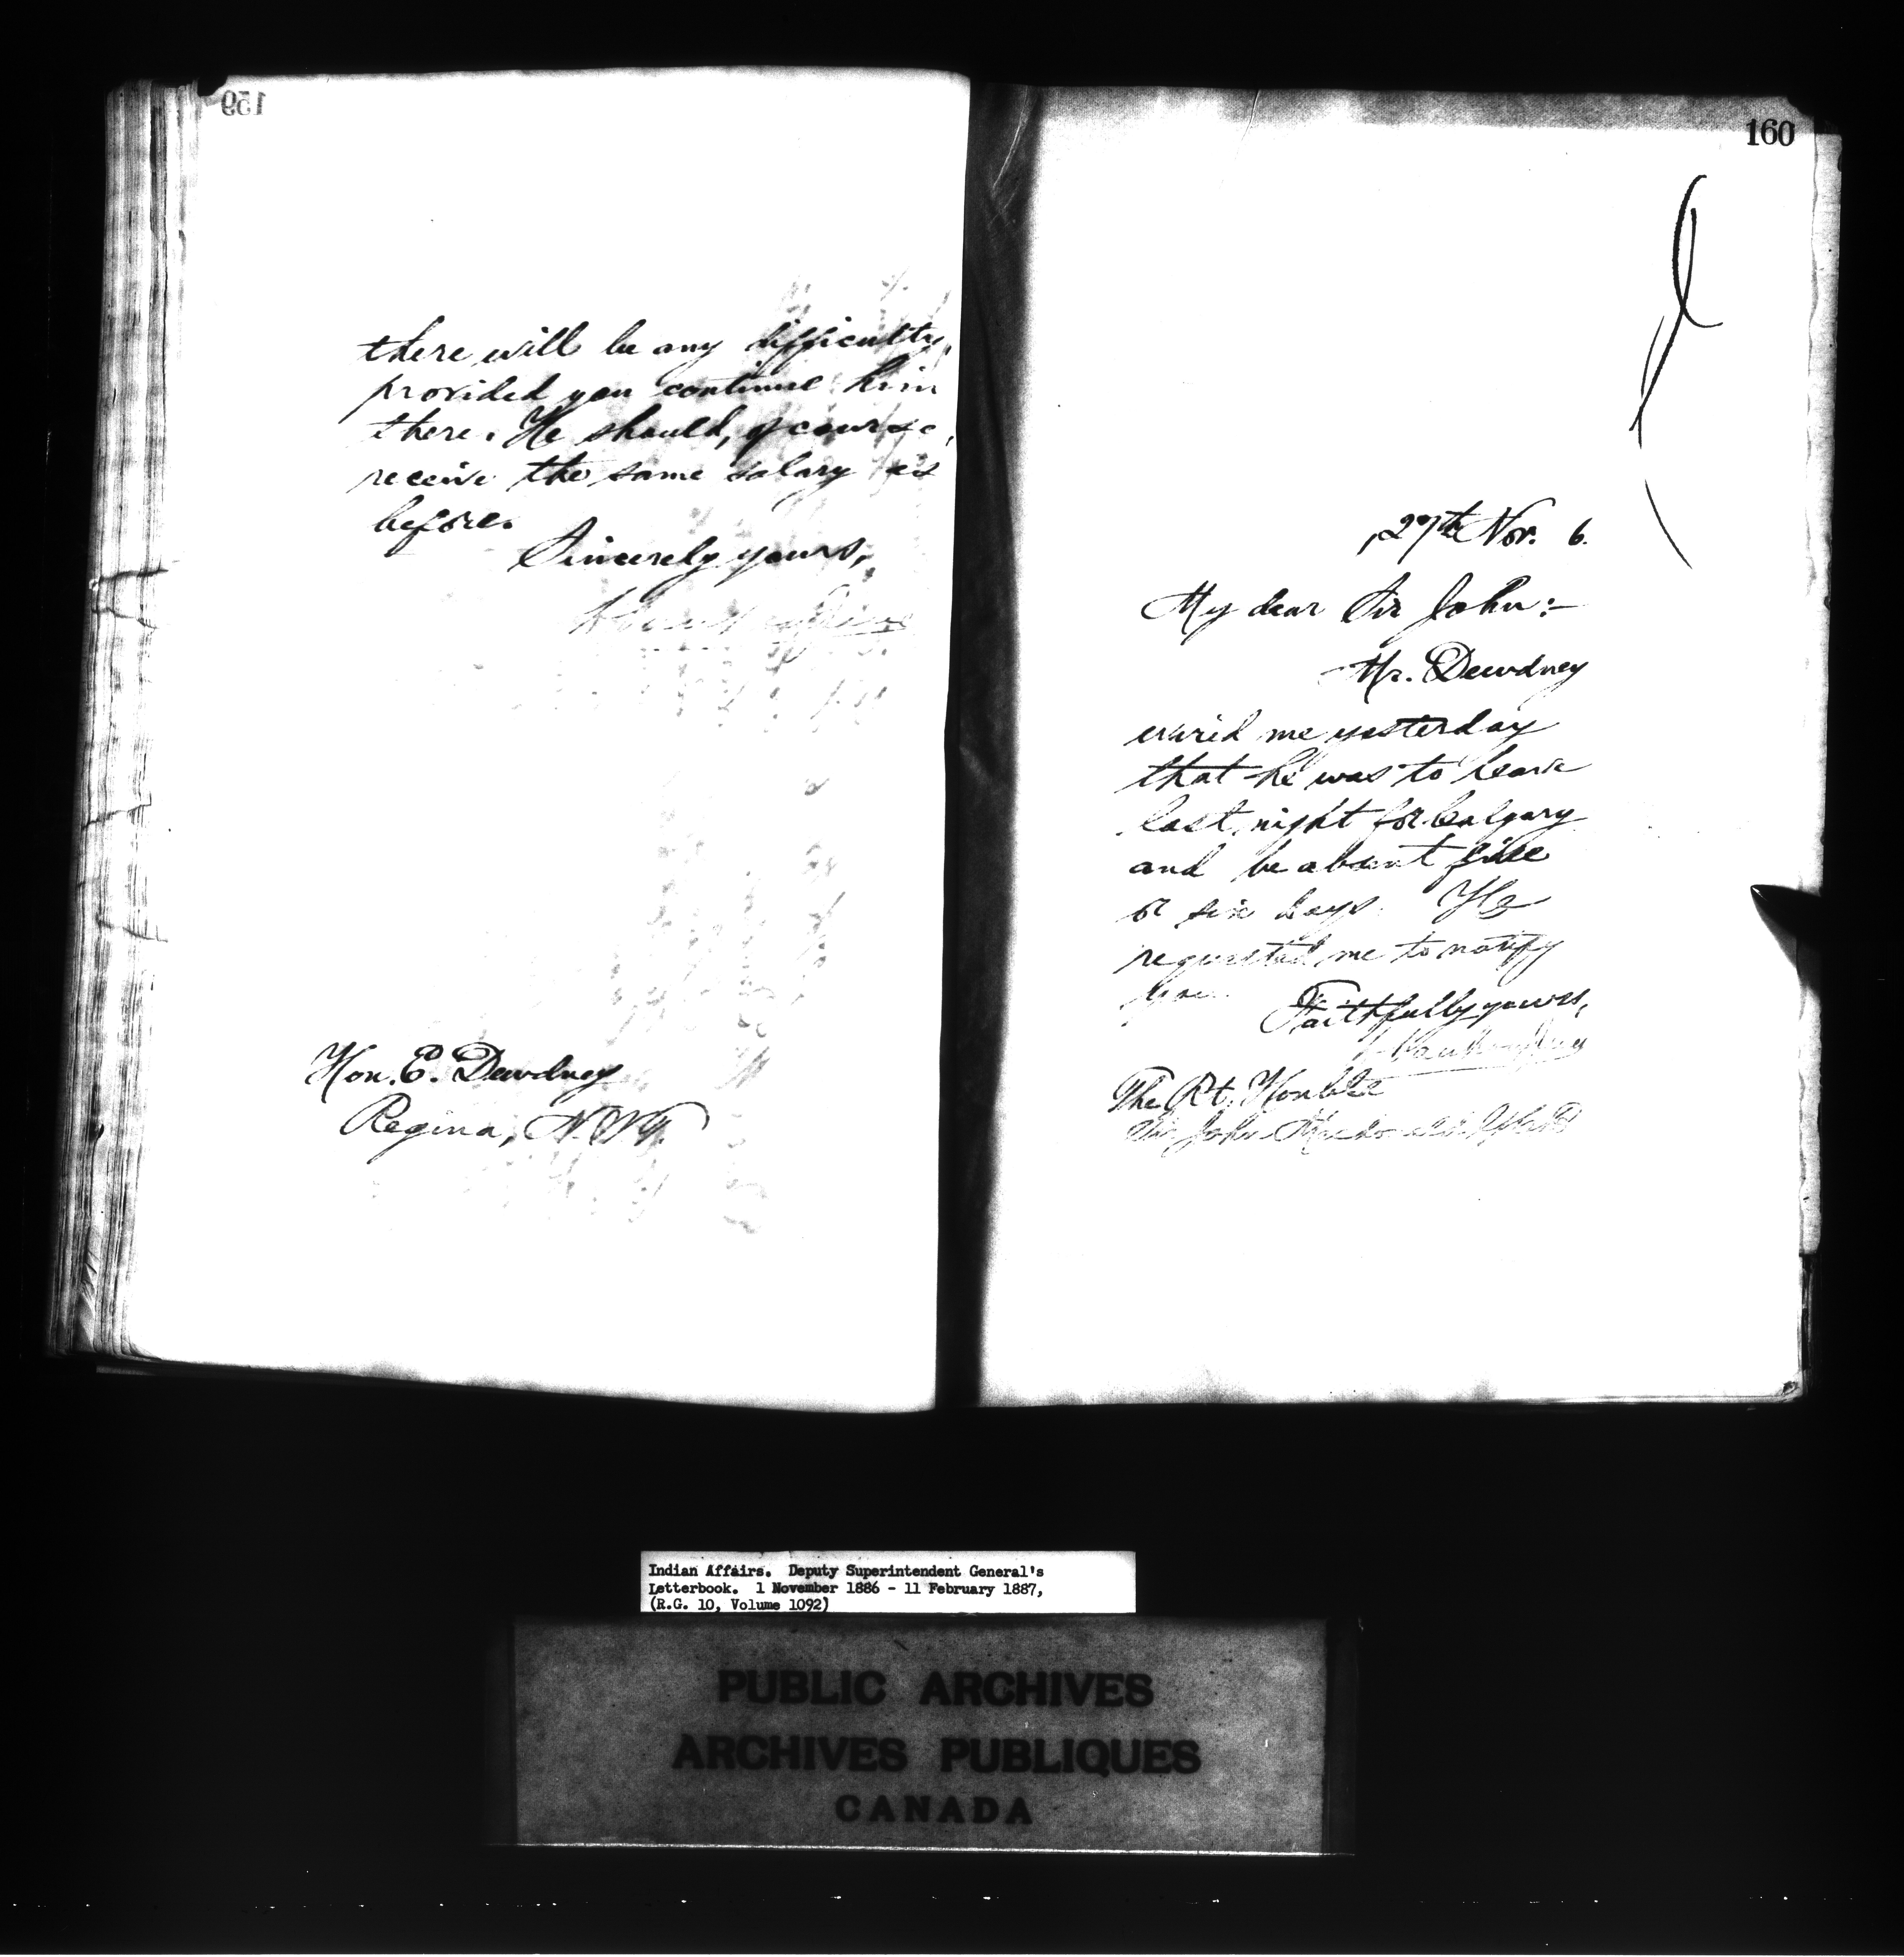 159
there will be any difficulty,
provided you continue him
there. He should, of course,
receive the same salary as
before.
Sincerely yours,
Hon. E. Dewdney
Regina, N.W.T.
160
27th Nov. 6.
My dear Sir John:-
Mr. Dewdney
wired me yesterday
that he was to leave
last night for Calgary
and be absent five
or six days. He
requested me to notify
you.
Faithfully yours,
L. Vankoughnet
The Rt. Honble
Sir John Macdonald
Indian Affairs. Deputy Superintendent General's
Letterbook. 1 November 1886 - 11 February 1887,
(R.G. 10, Volume 1092)
PUBLIC ARCHIVES
ARCHIVES PUBLIQUES
CANADA